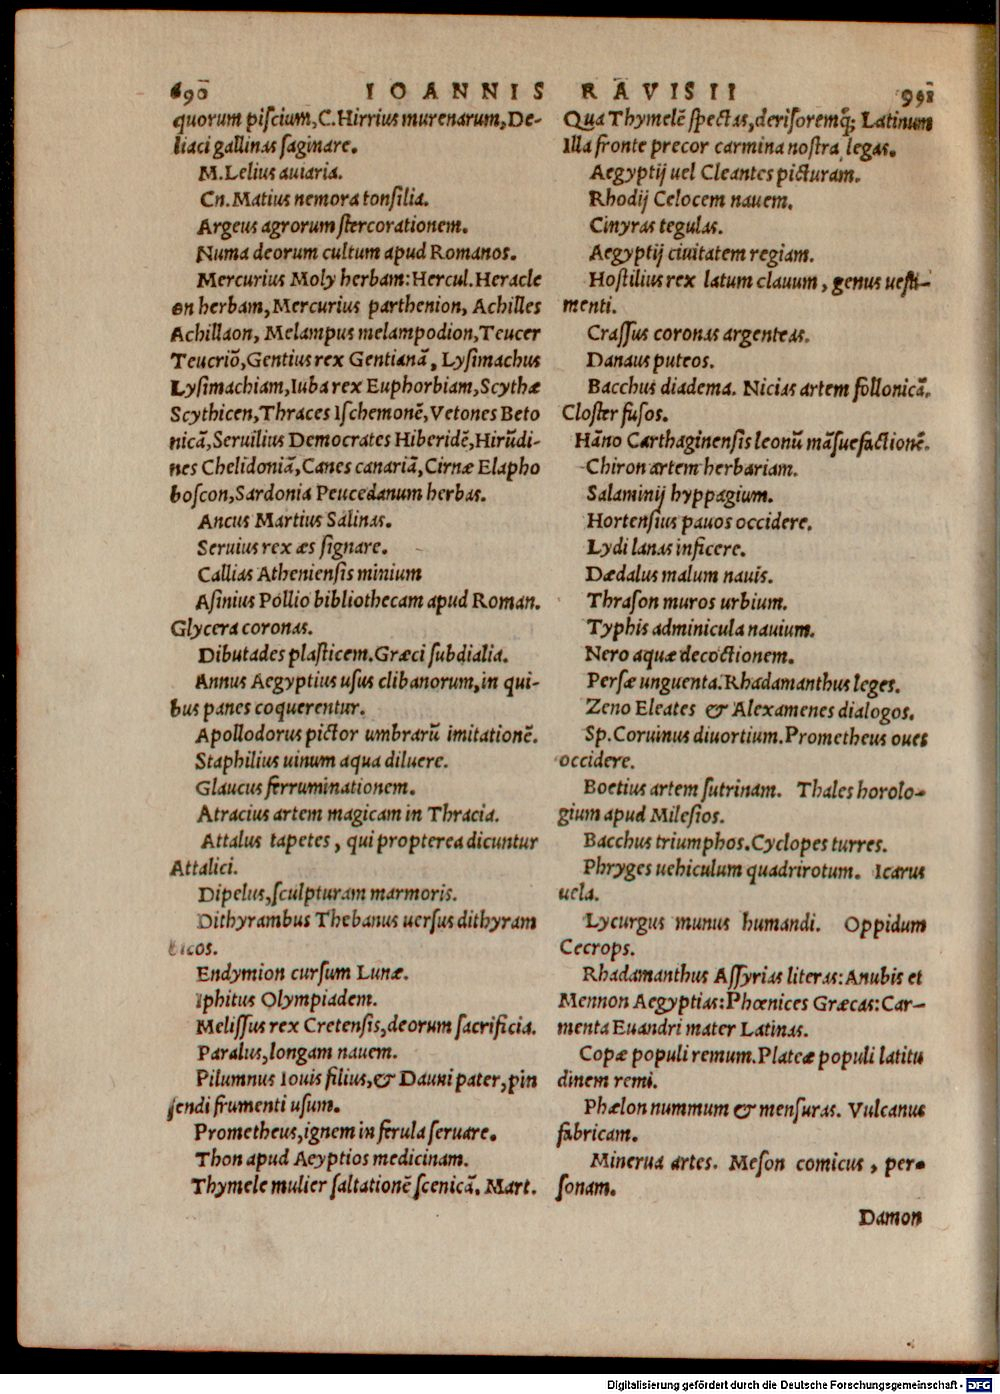 690 IOANNIS RAVISII 991
quorum piscium, C. Hirrius murenarum, De-
liaci gallinas saginare.
M. Lelius auiaria.
Cn. Matius nemora tonsilia.
Argeus agrorum stercorationem.
Numa deorum cultum apud Romanos.
Mercurius Moly herbam: Hercul. Heracle
on herbam, Mercurius parthenion, Achilles
Achillaon, Melampus melampodion, Teucer
Teucriō, Gentius rex Gentianā, Lysimachus
Lysimachiam, Iuba rex Euphorbiam, Scythæ
Scythicen, Thraces Ischemonē, Vetones Beto
nicā, Seruilius Democrates Hiberidē, Hirūdi-
nes Chelidoniā, Canes canariā, Cirnæ Elapho
boscon, Sardonia Peucedanum herbas.
Ancus Martius Salinas.
Seruius rex æs signare.
Callias Atheniensis minium
Asinius Pollio bibliothecam apud Roman.
Glycera coronas.
Dibutades plasticem. Græci subdialia.
Annus Aegyptius usus clibanorum, in qui-
bus panes coquerentur.
Apollodorus pictor umbrarū imitationē.
Staphilius uinum aqua diluere.
Glaucus ferruminationem.
Atracius artem magicam in Thracia.
Attalus tapetes, qui propterea dicuntur
Attalici.
Dipelus, sculpturam marmoris.
Dithyrambus Thebanus uersus dithyram
bicos.
Endymion cursum Lunæ.
Iphitus Olympiadem.
Melissus rex Cretensis, deorum sacrificia.
Paralus, longam nauem.
Pilumnus Iouis filius, & Dauni pater, pin
sendi frumenti usum.
Prometheus, ignem in ferula seruare.
Thon apud Aeyptios medicinam.
Thymele mulier saltationē scenicā. Mart.
Qua Thymelē spectas, derisoremq; Latinum
Illa fronte precor carmina nostra legas.
Aegyptij uel Cleantes picturam.
Rhodij Celocem nauem.
Cinyras tegulas.
Aegyptij ciuitatem regiam.
Hostilius rex latum clauum, genus uesti-
menti.
Crassus coronas argenteas.
Danaus puteos.
Bacchus diadema. Nicias artem follonicā.
Closter fusos.
Hāno Carthaginensis leonū māsuefactionē.
Chiron artem herbariam.
Salaminij hyppagium.
Hortensius pauos occidere.
Lydi lanas inficere.
Dædalus malum nauis.
Thrason muros urbium.
Typhis adminicula nauium.
Nero aquæ decoctionem.
Persæ unguenta. Rhadamanthus leges.
Zeno Eleates & Alexamenes dialogos.
Sp. Coruinus diuortium. Prometheus oues
occidere.
Boetius artem sutrinam. Thales horolo-
gium apud Milesios.
Bacchus triumphos. Cyclopes turres.
Phryges uehiculum quadrirotum. Icarus
uela.
Lycurgus munus humandi. Oppidum
Cecrops.
Rhadamanthus Assyrias literas: Anubis et
Mennon Aegyptias: Phœnices Græcas: Car-
menta Euandri mater Latinas.
Copæ populi remum. Plateæ populi latitu
dinem remi.
Phælon nummum & mensuras. Vulcanus
fabricam.
Minerua artes. Meson comicus, per-
sonam.
Damon
Digitalisierung gefördert durch die Deutsche Forschungsgemeinschaft - DFG